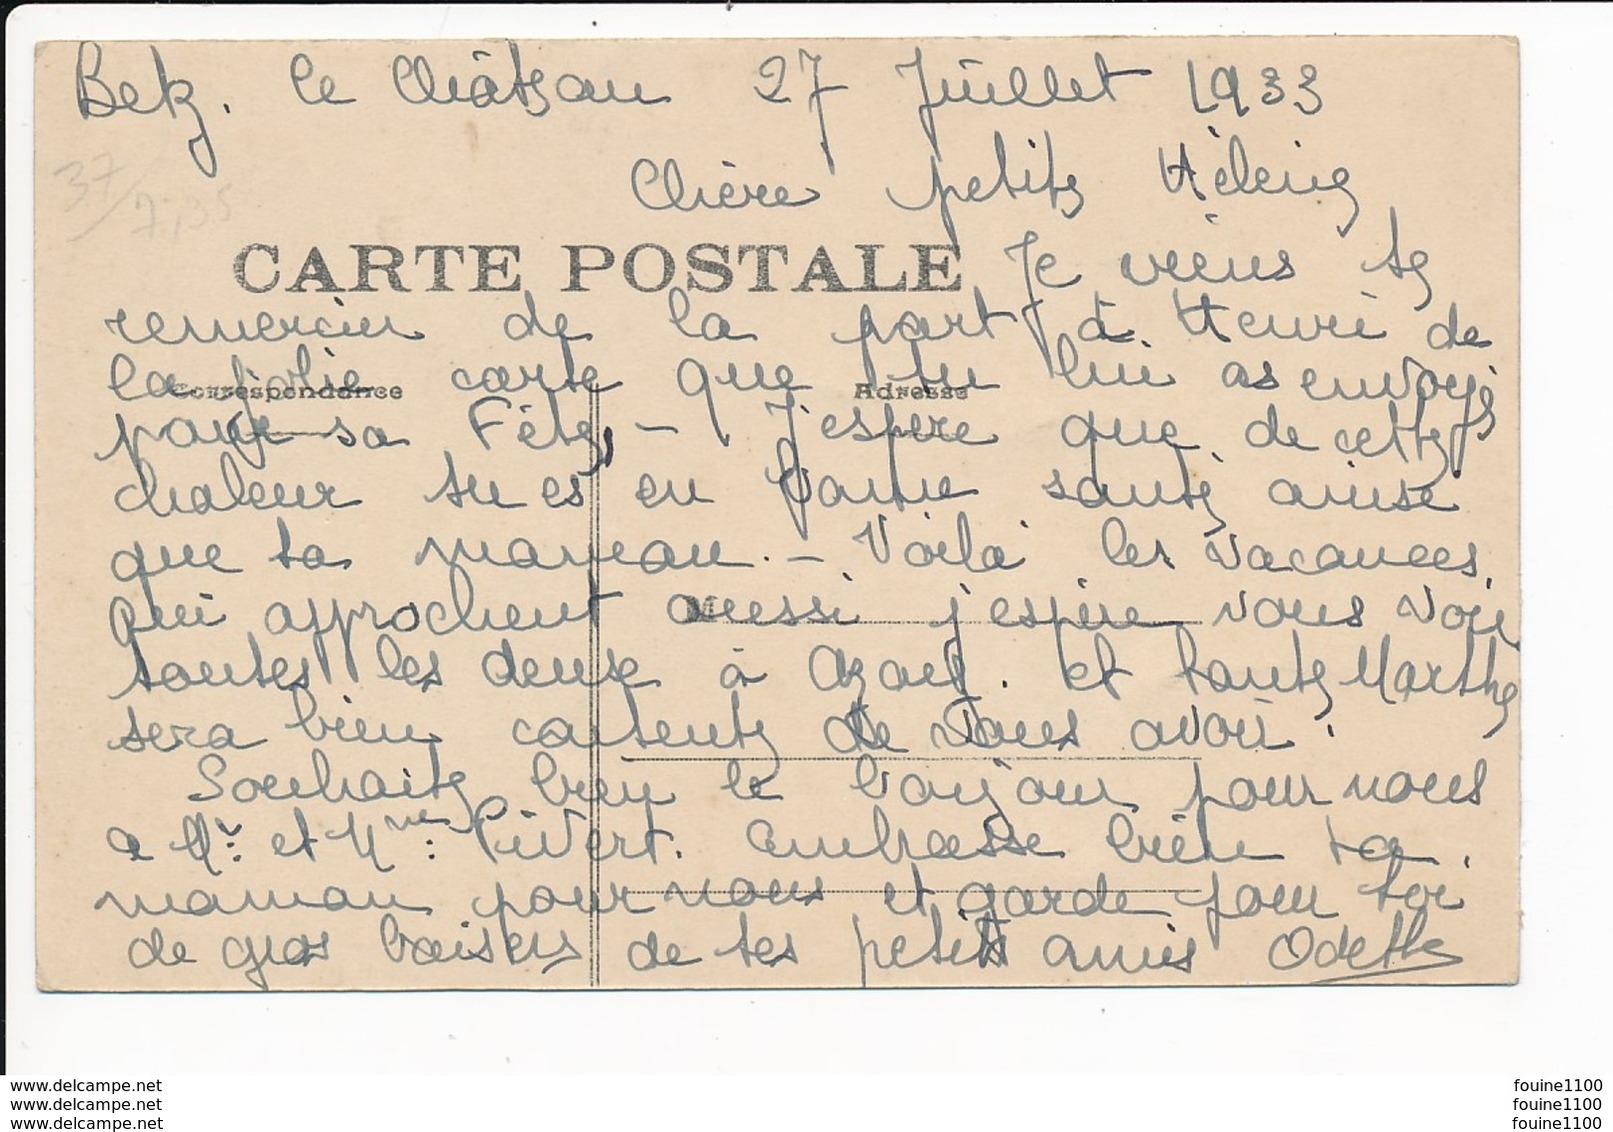 Betz. le Château 27 Juillet 1933
37/7,35
Chère petite Hélène
CARTE POSTALE
Je viens te
remercier de la part à Henri de
la jolie carte que tu lui as envoyée
Correspondance
Adresse
pour sa Fête, - J'espère que de cette
chaleur tu es en bonne santé ainsi
que ta maman. - Voilà les vacances
qui approchent aussi j'espère vous voir
M
toutes les deux à Azay. et tante Marthe
sera bien contente de vous avoir.
Souhaite bien le bonjour pour nous
a Mr: et Mme: Pivert. embrasse bien ta
maman pour nous et garde pour toi
de gros baisers de tes petits amis Odette
www.delcampe.net
www.delcampe.net
www.delcampe.net
fouine1100
fouine1100
fouine1100